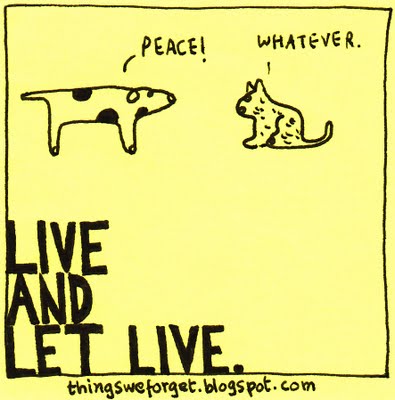 PEACE!
WHATEVER.
LIVE
AND
LET LIVE.
thingsweforget.blogspot.com